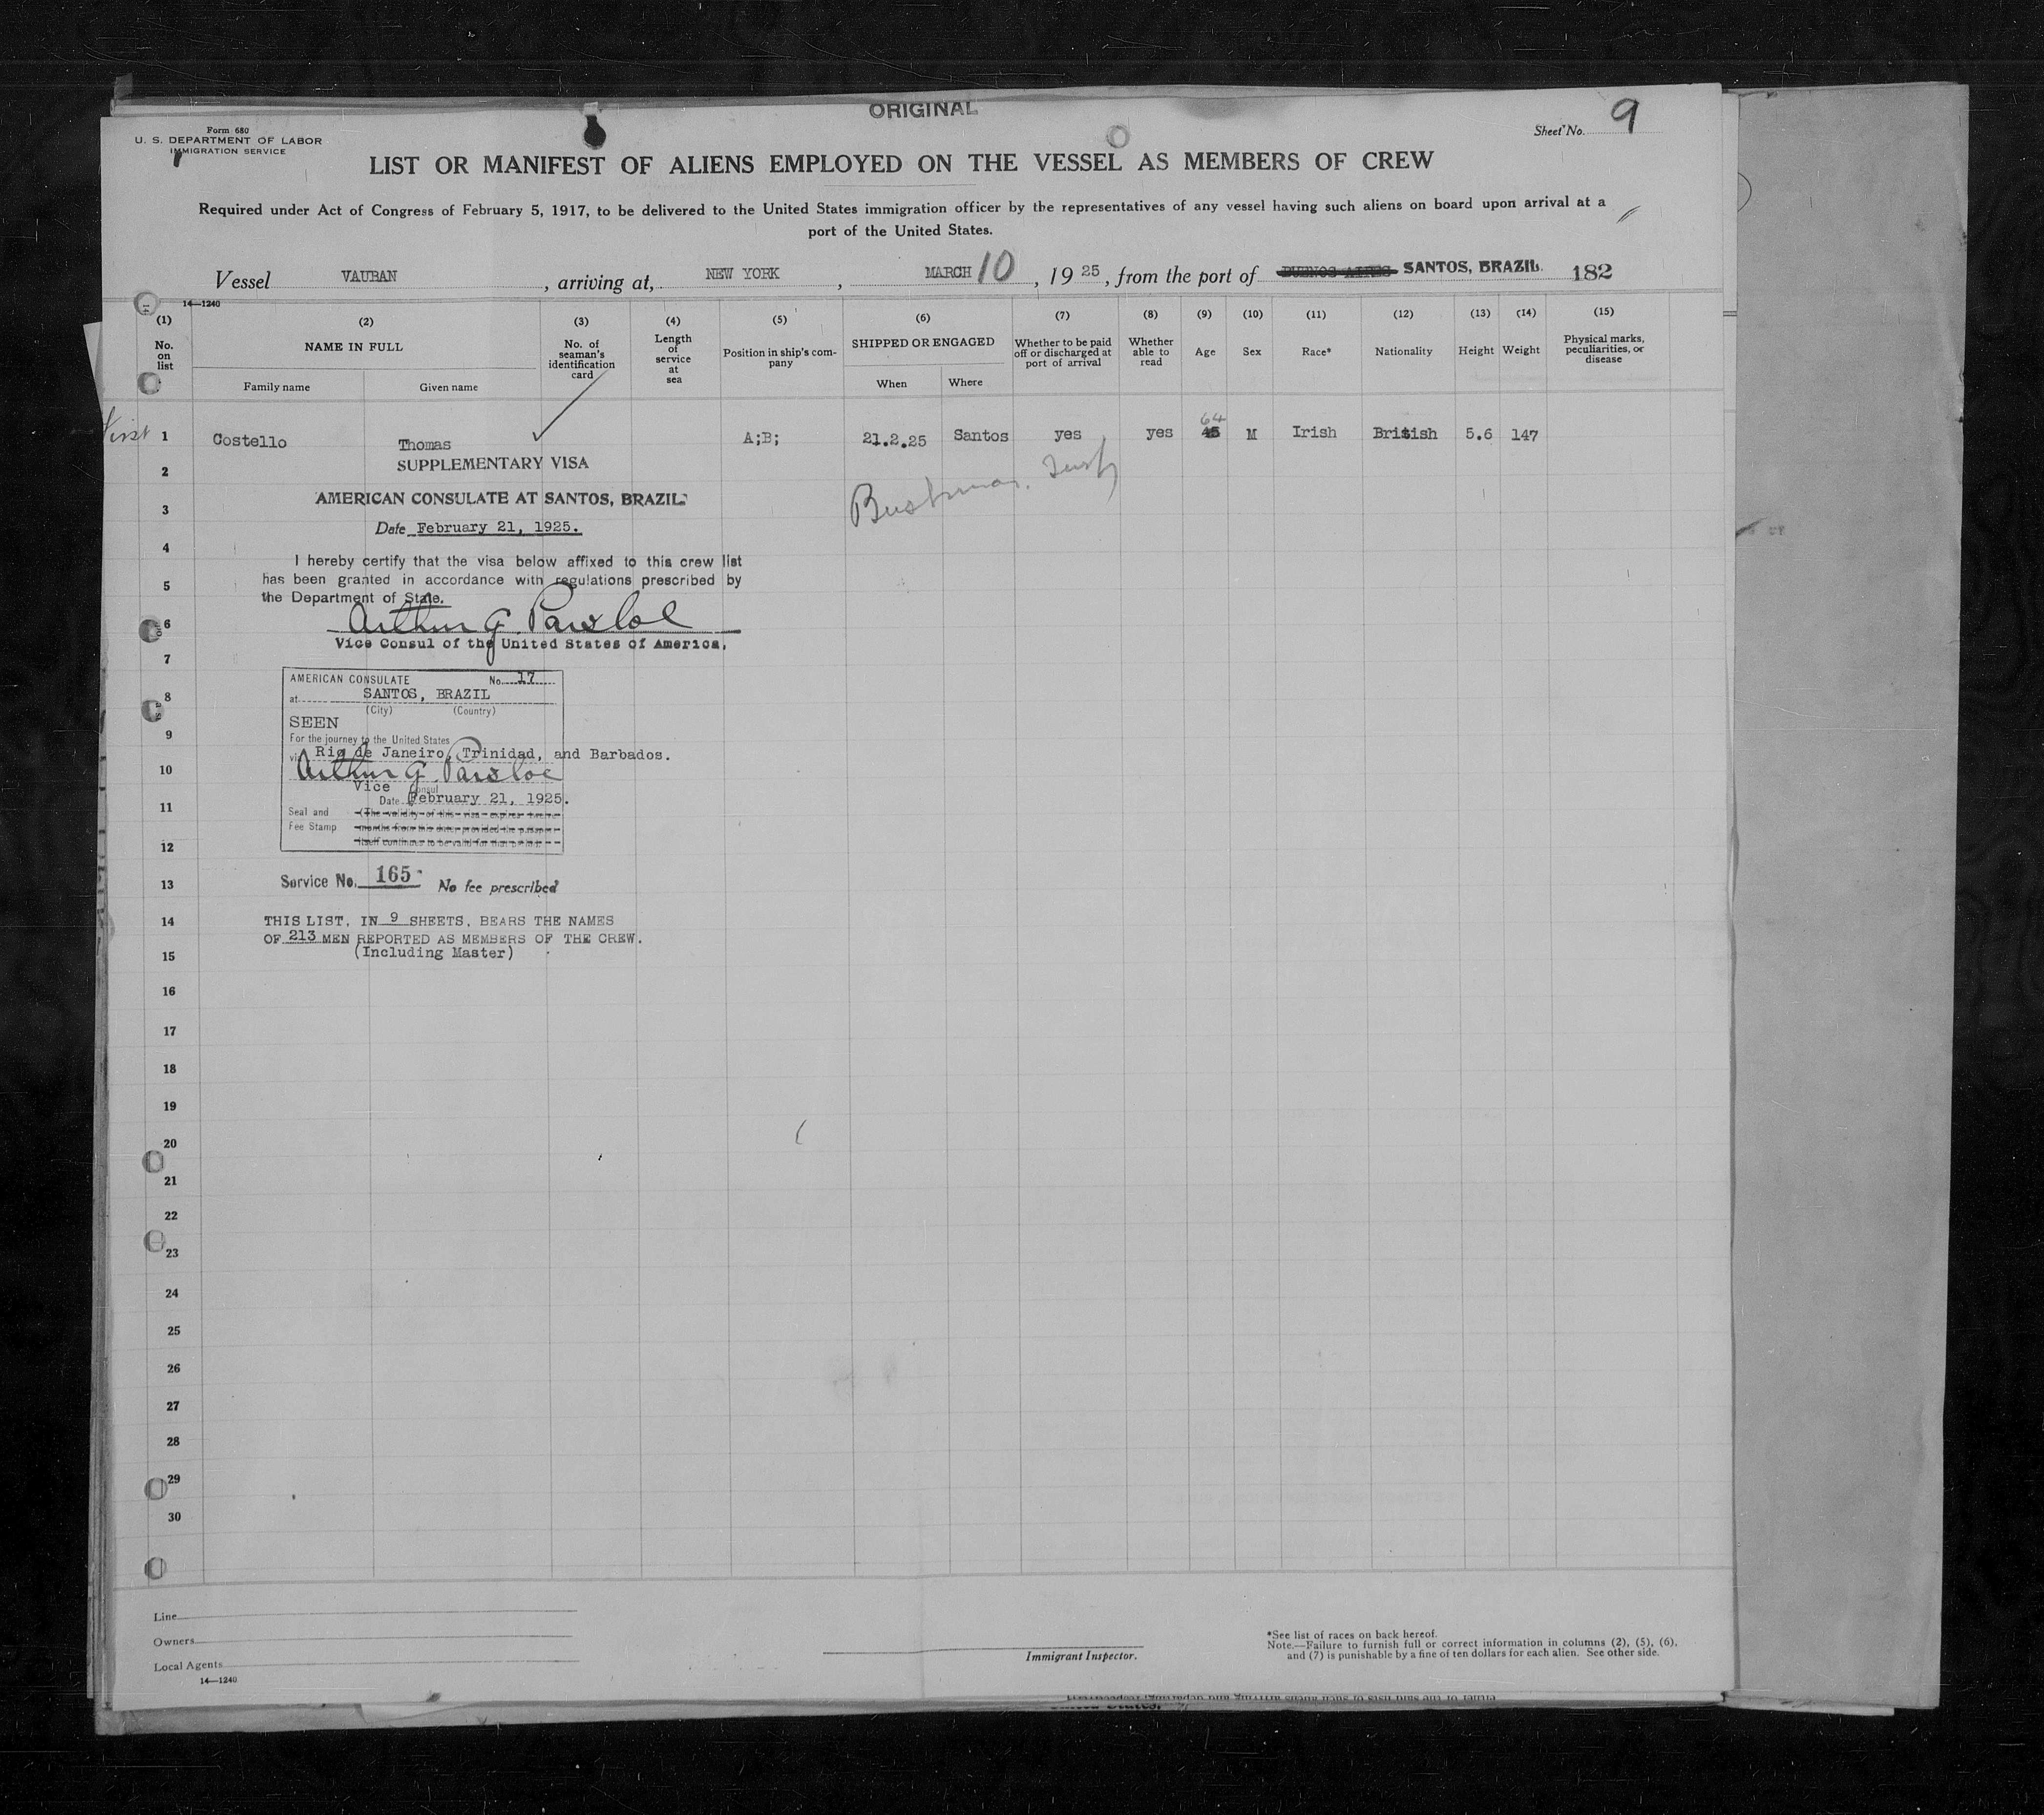 ORIGINAL
Form 680
U. S. DEPARTMENT OF LABOR
IMMIGRATION SERVICE
Sheet No. 9
LIST OR MANIFEST OF ALIENS EMPLOYED ON THE VESSEL AS MEMBERS OF CREW
Required under Act of Congress of February 5, 1917, to be delivered to the United States immigration officer by the representatives of any vessel having such aliens on board upon arrival at a
port of the United States.
Vessel VAUBAN, arriving at, NEW YORK, MARCH 10, 19 25, from the port of BUENOS AIRES SANTOS, BRAZIL. 182
14—1240
(1) (2) (3) (4) (5) (6) (7) (8) (9) (10) (11) (12) (13) (14) (15)
No. on list
NAME IN FULL
Family name
Given name
No. of seaman's identification card
Length of service at sea
Position in ship's company
SHIPPED OR ENGAGED
When
Where
Whether to be paid off or discharged at port of arrival
Whether able to read
Age
Sex
Race*
Nationality
Height
Weight
Physical marks, peculiarities, or disease
64
1 Costello Thomas A;B; 21.2.25 Santos yes yes 45 M Irish British 5.6 147
SUPPLEMENTARY VISA
2
AMERICAN CONSULATE AT SANTOS, BRAZIL
3
Date February 21, 1925.
4
I hereby certify that the visa below affixed to this crew list
has been granted in accordance with regulations prescribed by
5
the Department of State.
Arthur G. Parsloe
6
Vice Consul of the United States of America.
7
AMERICAN CONSULATE No. 17
at SANTOS, BRAZIL
8
(City) (Country)
SEEN
9
For the journey to the United States
via Rio de Janeiro, Trinidad, and Barbados.
10
Arthur G. Parsloe
Vice Consul
Date February 21, 1925.
11
Seal and
Fee Stamp
(The validity of this visa expires twelve
months from this date provided the passport
itself continues to be valid for that period.
12
Service No. 165 No fee prescribed
13
14
THIS LIST, IN 9 SHEETS, BEARS THE NAMES
OF 213 MEN REPORTED AS MEMBERS OF THE CREW.
(Including Master)
15
16
17
18
19
20
21
22
23
24
25
26
27
28
29
30
Line
Owners
Local Agents
14—1240
Immigrant Inspector.
*See list of races on back hereof.
Note.—Failure to furnish full or correct information in columns (2), (5), (6),
and (7) is punishable by a fine of ten dollars for each alien. See other side.